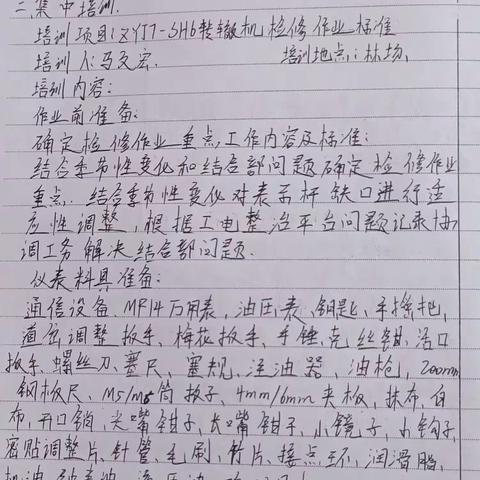 二、集中培训.
培训项目:ZYJ7-SH6转辙机检修作业标准
培训人:马文宏. 培训地点:林场.
培训内容:
作业前准备:
确定检修作业重点,工作内容及标准:
结合季节性变化和结合部问题确定检修作业
重点.结合季节性变化对表示杆缺口进行适
应性调整,根据工电整治平台问题记录协
调工务解决结合部问题.
仪表料具准备:
通信设备、MF14万用表,油压表、钥匙、手摇把,
道岔调整扳手、梅花扳手、手锤、克丝钳、活口
扳手、螺丝刀、塞尺、塞规、注油器、油枪、200mm
钢板尺、M5/M6筒扳子、4mm/6mm夹板、抹布、白
布,开口销,尖嘴钳子、长嘴钳子、小镜子、小钩子、
密贴调整片、针管、毛刷、竹片、接点环、润滑脂、
机油